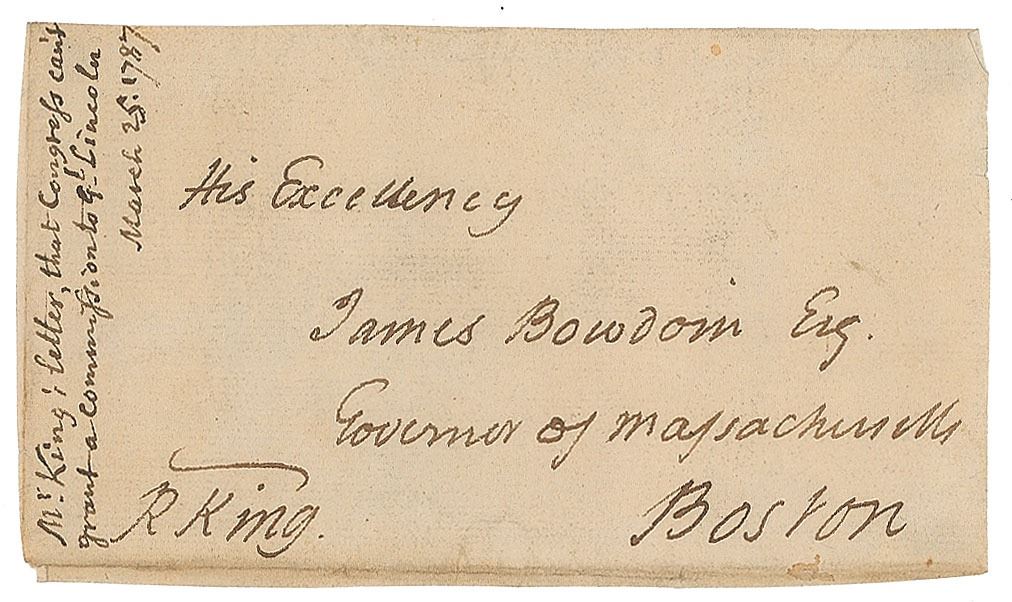 Mr. King's letter, that Congress can't
grant a commission to Gl. Lincoln
March 25. 1787
His Excellency
James Bowdoin Esq.
Governor of Massachusetts
R King.
Boston